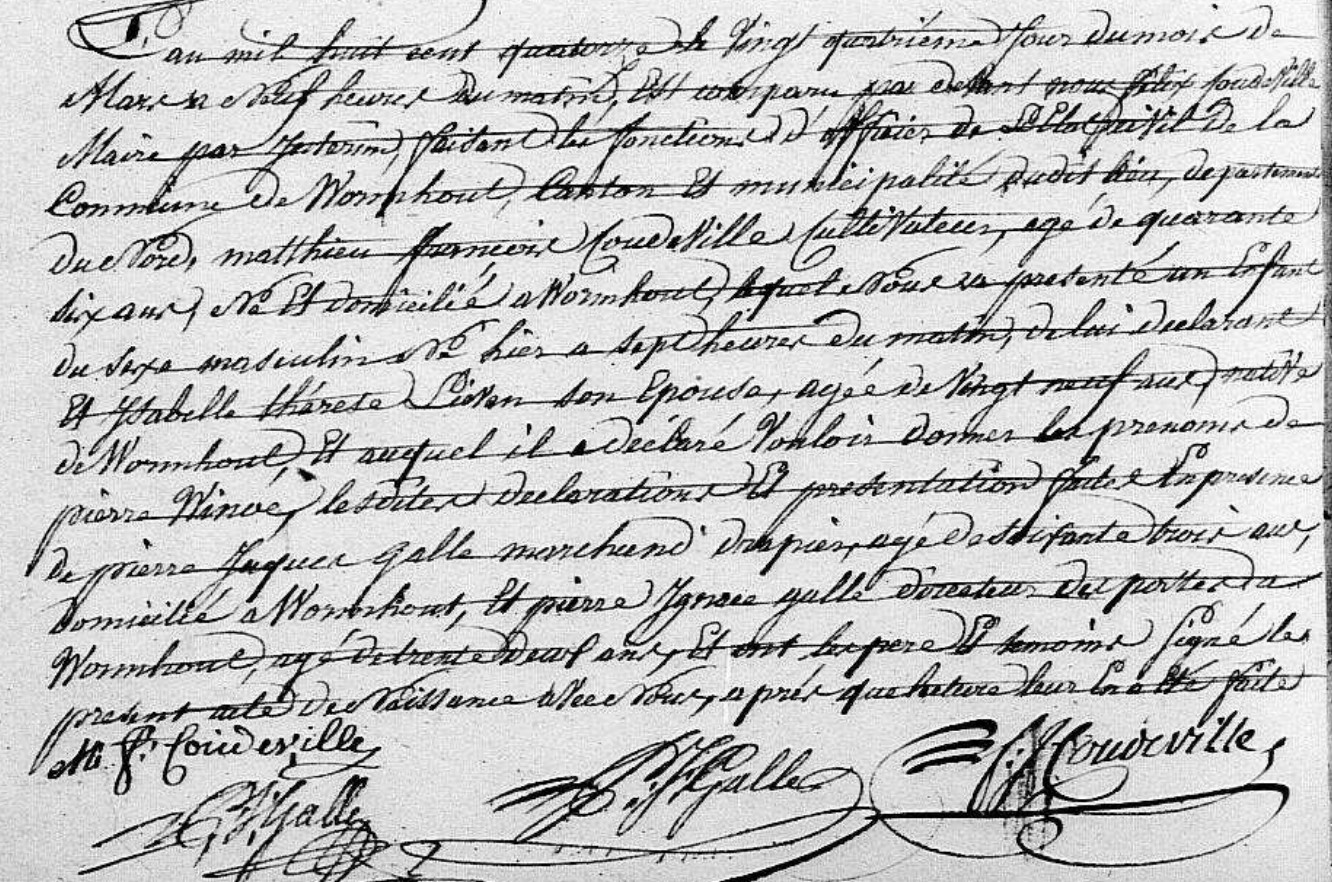 L'an mil huit cent quatorze le Vingt quatriéme Jour du mois de
Mars a Neuf heures du matin, Est comparu par devant nous félix Coudeville
Maire par Interim, faisant les fonctions d'officier de L'Etat Civil de la
Commune de Wormhout, Canton Et municipalité dudit lieu, departement
du Nord, matthieu francois Coudeville Cultivateur, agé de quarante
six ans, Né Et domicilié a Wormhout, lequel Nous a presenté un Enfant
du sexe masculin Né hier a sept heures du matin, de lui declarant
Et Ysabelle thérese Lieven son Epouse, agée de Vingt neuf ans, native
de Wormhout, Et auquel il a déclaré Vouloir donner les prenoms de
pierre Winoc, lesdites declarations Et presentation faites En presence
de pierre Jaques Galle marchand drapier, agé de soixante trois ans,
domicilié a Wormhout, Et pierre Ignace galle directeur des postes a
Wormhout, agé de trente deux ans, Et ont les pere Et temoins Signé les
present acte de Naissance avec Nous, aprés que lecture leur En a Eté faite
M. f. Coudeville
P. J. Galle P. J. Galle f. J. Coudeville